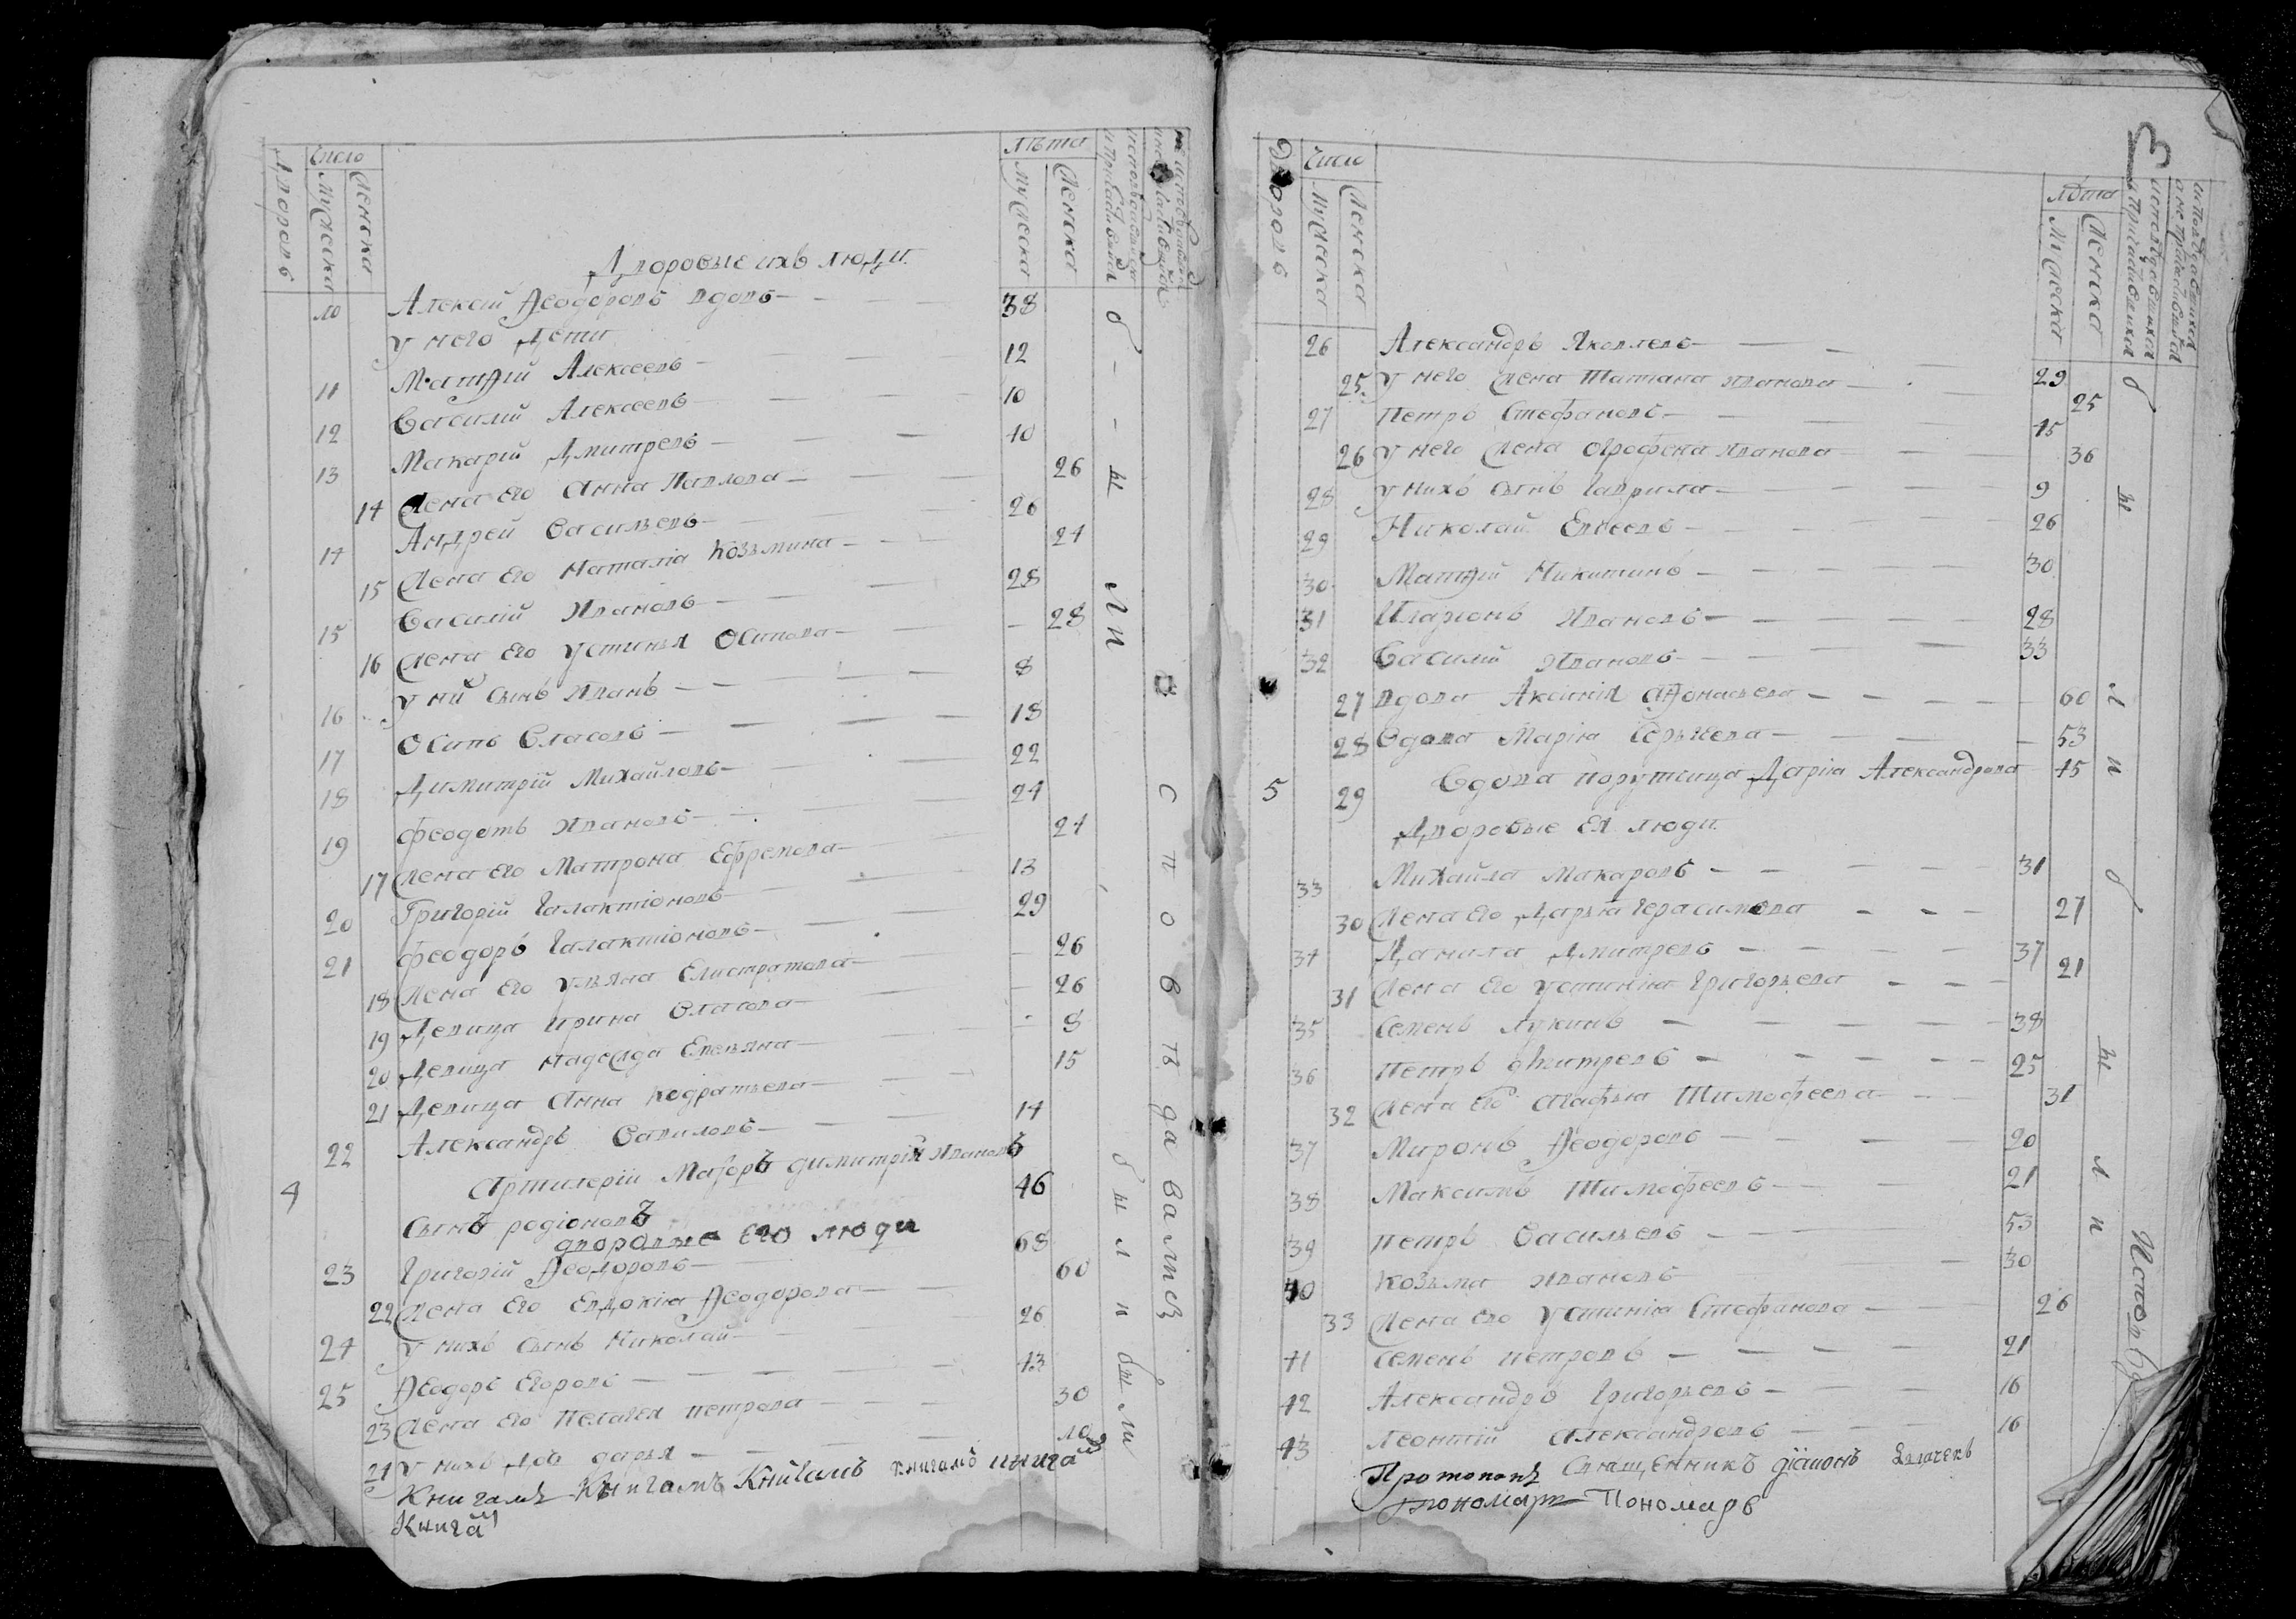 Дворовъ
Число
Мужеска
Женска
Лѣта
Мужеска
Женска
Дворовые ихъ люди
10 Алексѣй Ѳеодоровъ вдовъ 38
у него дети
11 Матѳій Алексеевъ 12
12 Василій Алексеевъ 10
13 Макарій Дмитревъ 40
14 Жена его Анна Павлова 26
14 Андрей Васильевъ 26
15 Жена его Наталіа Козьмина 24
15 Василій Ивановъ 28
16 Жена его Устинья Осипова 28
16 У ній сынъ Иванъ 8
17 Осипъ Власовъ 18
18 Димитрій Михайловъ 22
19 Феодотъ Ивановъ 24
17 Жена его Матрона Ефремова 24
20 Григорій Галактіоновъ 13
21 Феодоръ Галактіоновъ 29
18 Жена его Ульяна Елистратова 26
19 Девица Ирина Власова 26
20 Девица Надежда Емельяна 8
21 Девица Анна Кодратьева 15
22 Александръ Вавиловъ 14
4 Артилеріи Маіоръ Димитрій Ивановъ
Сынъ родіоновъ 46
дворовые его люди
23 Григорій Ѳеодоровъ 68
22 Жена его Евдокіа Ѳеодорова 60
24 У нихъ сынъ Николай 26
25 Ѳеодоръ Егоровъ 43
23 Жена его Пелагея Петрова 30
24 У нихъ дѣв дарья 10
Книгамъ Книгамъ Книгамъ книгамъ книгам
Книгам
были
исповѣдавались
были
были
3
Дворовъ
Число
Мужеска
Женска
Лѣта
Мужеска
Женска
26 Александръ Яковлевъ 29
25 У него жена Татіана Иванова 25
27 Петръ Стефановъ 45
26 У него жена Огрофена Иванова 36
28 У нихъ сынъ Гаврила 9
29 Николай Евсеевъ 26
30 Матѳій Никитинъ 30
31 Иларіонъ Ивановъ 28
32 Василій Ивановъ 33
27 Вдова Аксиніа Аѳонасьева 60
28 Вдова Маріа Сергѣева 53
5 29 Вдова порутчица Даріа Александрова 45
Дворовые ея люди
33 Михайла Макаровъ 31
30 Жена его Дарьіа Герасимова 27
34 Данила Дмитревъ 37
31 Жена его Устиніа Григорьева 21
35 Семенъ Лукинъ 38
36 Петръ Дмитревъ 25
32 Жена его Агафьіа Тимофеева 31
37 Миронъ Ѳеодоровъ 20
38 Максимъ Тимофеевъ 21
39 Петръ Васильевъ 53
40 Козьма Ивановъ 30
33 Жена его Устиніа Стефанова 26
41 Семенъ Петровъ 21
42 Александръ Григорьевъ 16
43 Леонтій Александровъ 16
Протопопъ Священникъ діаконъ
пономарь Пономаръ
были
были